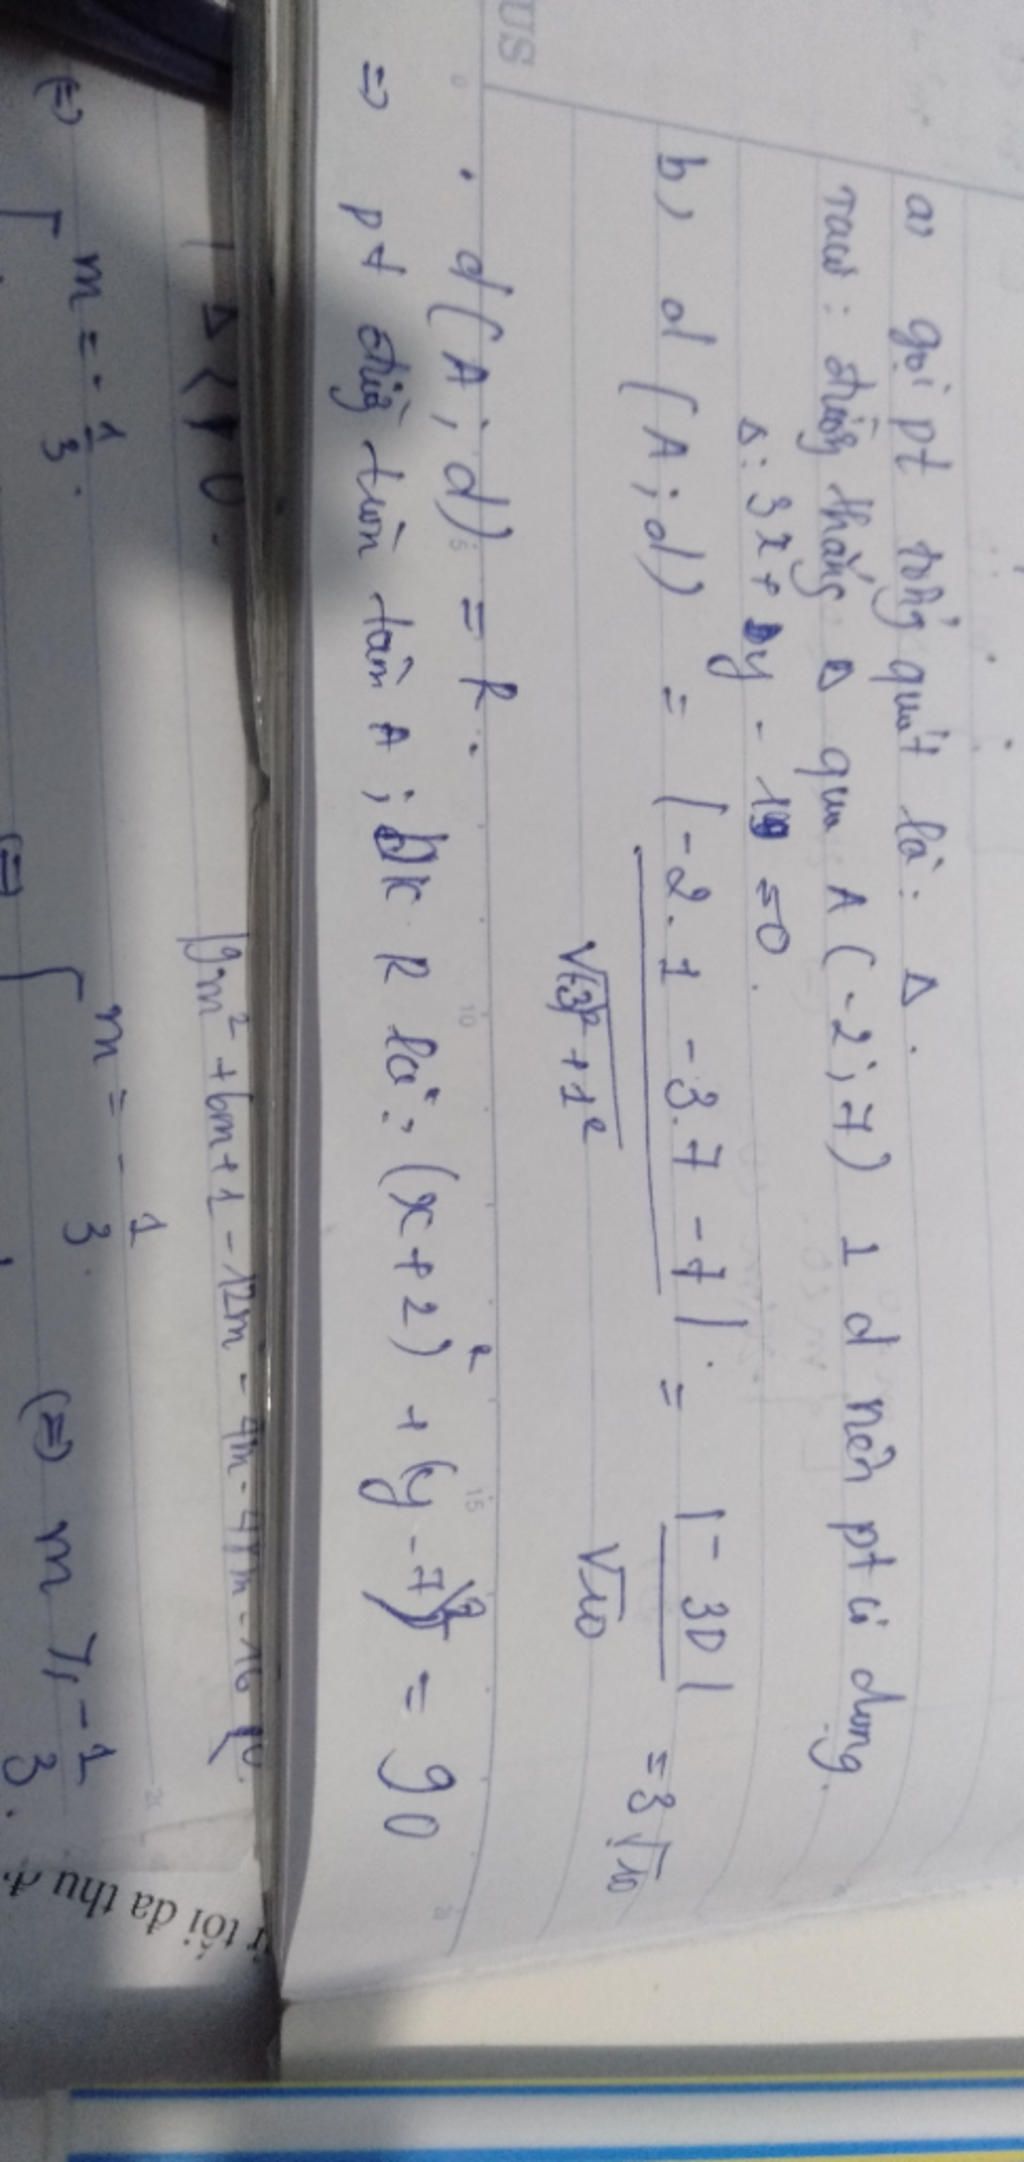 a) gọi pt tổng quát là: Δ.
Δ qua A (-2; 7) ⊥ d nên pt có dạng
Δ: 3x + y - 19 = 0.
b, d(A; d) = |-2.1 - 3.7 - 7| / √(-3)² + 1² = |-30| / √10 = 3√10
. d(A; d) = R.
=> pt đường tròn tâm A; bk R là: (x+2)² + (y-7)² = 90
US
9m² + 6m + 1 - 12m - 4m - 4m - 16
m = - 1/3.
(=) m = - 1/3. (=) m - 1/3.
tối đa thu